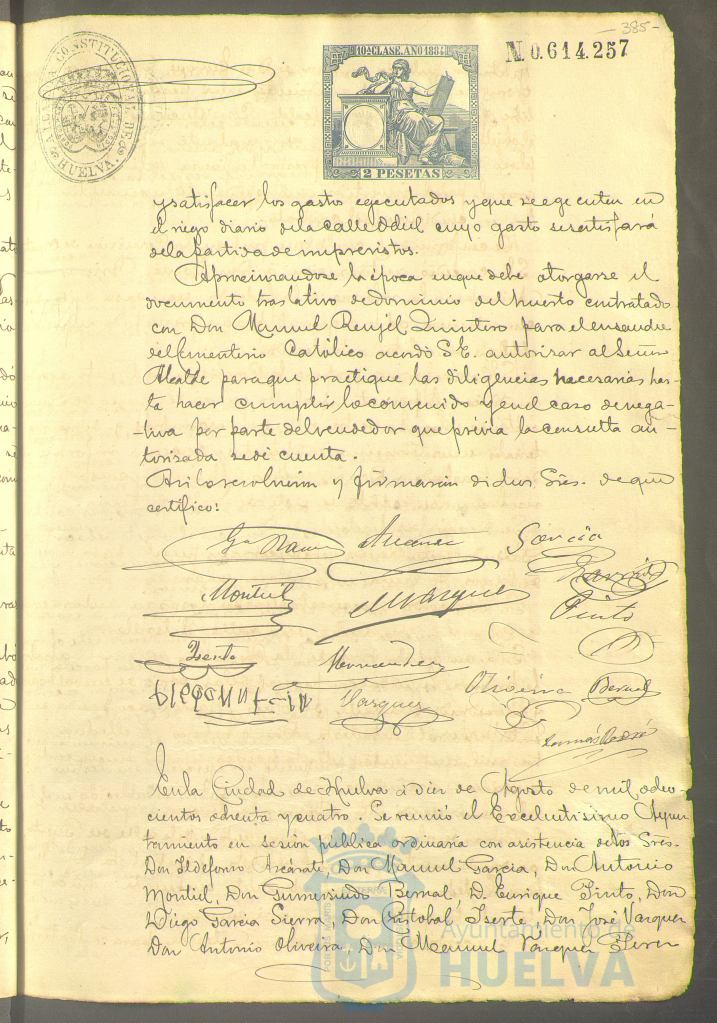 385-
10ª CLASE. AÑO 1884
N. 0.614.257
CONSTITUCIONAL DE
HUELVA.
2 PESETAS
y satisfacer los gastos egecutados y que se egecuten en
el riego diario de la calle Odiel cuyo gasto se satisfará
de la partida de imprevistos.
Aprocsimandose la época en que debe otorgarse el
documento traslativo de dominio del huerto contratado
con Don Manuel Renjel Quintero para el ensanche
del Cementerio Católico acordó S.E. autorizar al Señor
Alcalde para que practique las diligencias necesarias has-
ta hacer cumplir lo convenido y en el caso de nega-
-tiva por parte del vendedor que prévia la consulta au-
torizada se dé cuenta.
Asi lo resolvieron y firmarán dichos Sres. de que
certifico:
García
Montiel Vazquez Pinto
Yserte Hernandez
Vazquez Oliveira Bernal
Tomás
En la Ciudad de Huelva á diez de Agosto de mil ocho-
cientos ochenta y cuatro. Se reunió el Excelentisimo Ayun-
tamiento en sesión pública ordinaria con asistencia de los Sres.
Don Ildefonso Azcárate, Don Manuel García, Don Antonio
Montiel, Don Gumersindo Bernal, D. Enrique Pinto, Don
Diego García Sierra, Don Cristobal Yserte, Don José Vazquez
Don Antonio Oliveira, Don Manuel Vazquez Perez
Ayuntamiento de
HUELVA